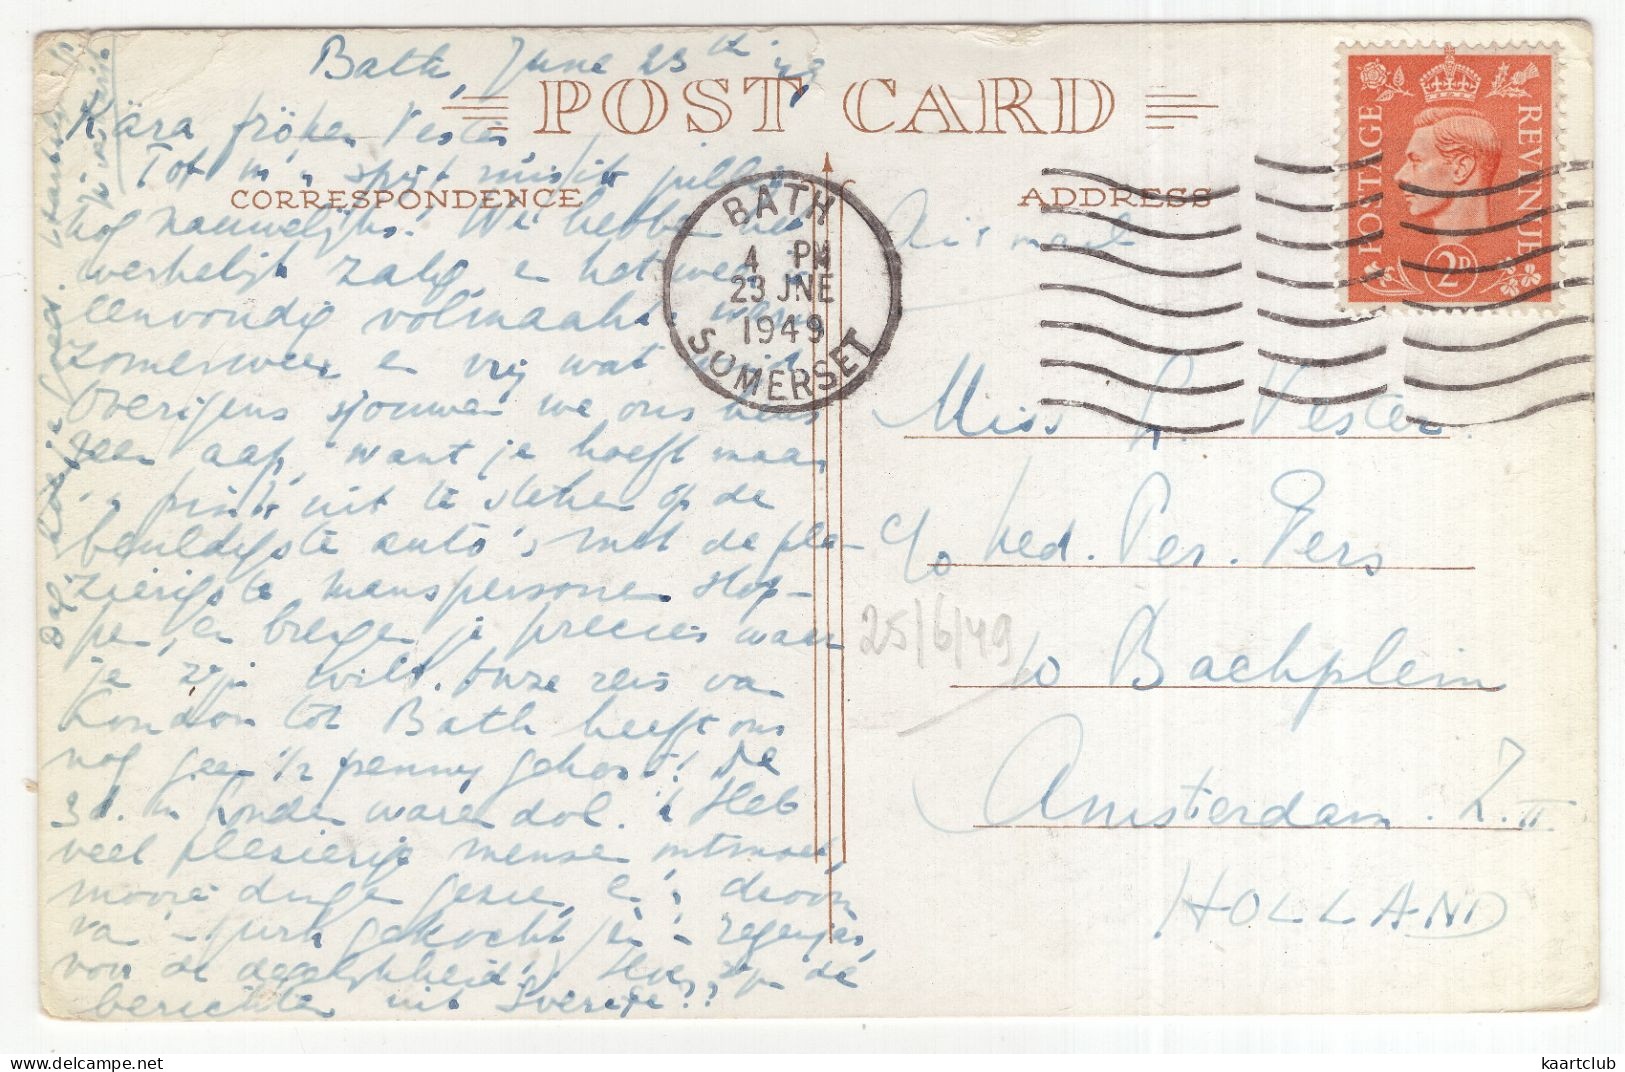 Bath, June 23th '49
POST CARD
Kära fröken Vester
CORRESPONDENCE
ADDRESS
nog nauwelijks! We hebben het
werkelijk zalig en het weer is
eenvoudig volmaakt. warm
zomerweer en vrij wat
Overigens sjouwen we ons heus
geen aap, want je hoeft maar
je uit te steken of de
beeldigste auto's met de ple-
zierigste manspersonen stop-
pen, en brengen je precies waar
je zijn wilt. Onze reis van
London tot Bath heeft ons
nog geen 1/2 penny gekost! De
3 d. in Londen waren dol. Heb
veel plezierige mensen ontmoet,
mooie dingen gezien, e'n droom
van 'n jurk gekocht (en 'n regenjas,
voor de degelijkheid!) Hoe zijn de
berichten uit Sverige??
BATH
4 PM
23 JNE
1949
SOMERSET
POSTAGE
REVENUE
2D
Air mail
Miss L. Vester.
c/o Ned. Per. Pers
10 Bachplein
Amsterdam. Z.II
HOLLAND
25/6/49
kaartclub